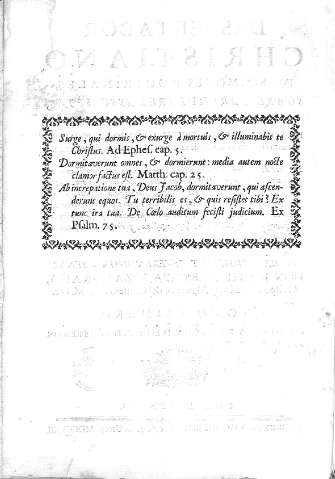 Surge, qui dormis, & exurge à mortuis, & illuminabis te
Christus. Ad Ephes. cap. 5.
Dormitaverunt omnes, & dormierunt: media autem nocte
clamor factus est. Matth. cap. 25.
Ab increpatione tua, Deus Jacob, dormitaverunt, qui ascen-
derunt equos. Tu terribilis es, & quis resistet tibi? Ex
tunc ira tua. De Cœlo auditum fecisti judicium. Ex
Psalm. 75.